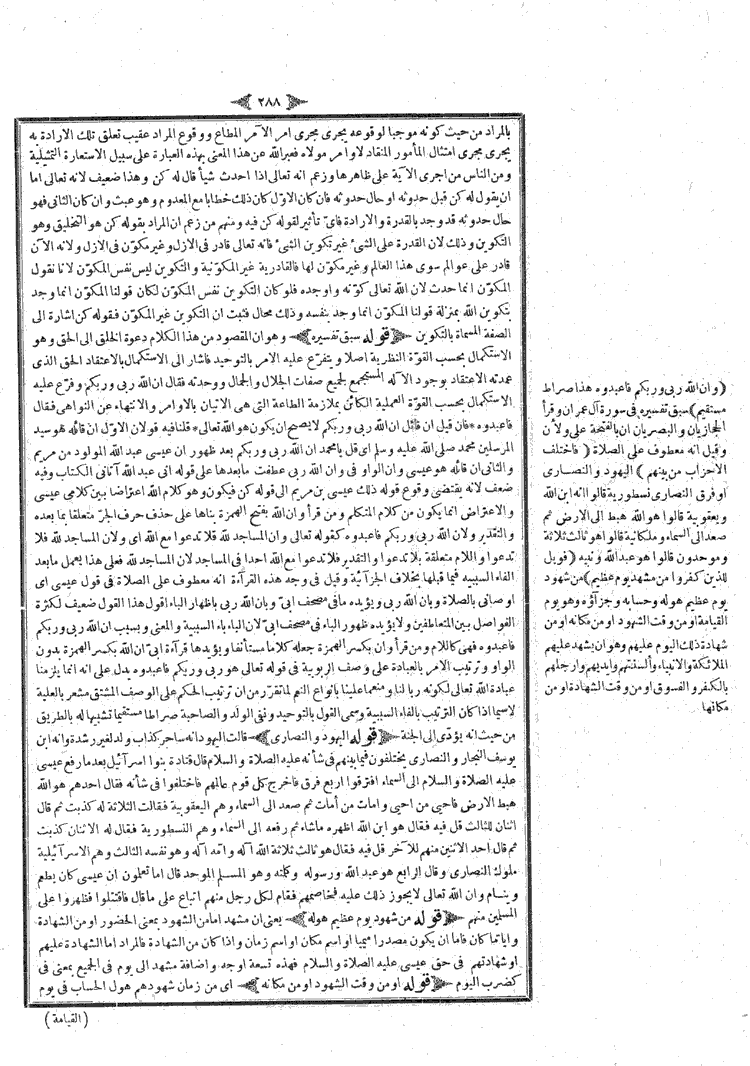 ﴿ ٢٨٨ ﴾
بالمراد من حيث كونه موجبا لوقوعه يجرى مجرى امر الآمر المطاع ووقوع المراد عقيب تعلق تلك الارادة به
يجرى مجرى امتثال المأمور المنقاد لاوامر مولاه فعبرالله عن هذا المعنى بهذه العبارة على سبيل الاستعارة التمثيلية
ومن الناس من اجرى الآية على ظاهرها وزعم انه تعالى اذا احدث شيأ قال له كن وهذا ضعيف لانه تعالى اما
ان يقول له كن قبل حدوثه او حال حدوثه فان كان الاول كان ذلك خطابا مع المعدوم وهو عبث وان كان الثانى فهو
حال حدوثه قد وجد بالقدرة والارادة فاى تأثير لقوله كن فيه ومنهم من زعم ان المراد بقوله كن هو التخليق وهو
التكوين وذلك لان القدرة على الشئ غير تكوين الشئ فانه تعالى قادر فى الازل وغير مكون فى الازل ولانه الآن
قادر على عوالم سوى هذا العالم وغير مكون لها فالقادرية غير المكونية والتكوين ليس نفس المكون لانا نقول
المكون انما حدث لان الله تعالى كونه واوجده فلو كان التكوين نفس المكون لكان قولنا المكون انما وجد
بتكوين الله بمنزلة قولنا المكون انما وجد بنفسه وذلك محال فثبت ان التكوين غير المكون فقوله كن اشارة الى
الصفة المسماة بالتكوين ﴿قوله سبق تفسيره﴾ وهو ان المقصود من هذا الكلام دعوة الخلق الى الحق وهو
الاستكمال بحسب القوة النظرية اصلا ويتفرع عليه الامر بالتوحيد فاشار الى الاستكمال بالاعتقاد الحق الذى
عمدته الاعتقاد بوجود الآله المستجمع لجميع صفات الجلال والجمال ووحدته فقال ان الله ربى وربكم وفرع عليه
الاستكمال بحسب القوة العملية الكائن بملازمة الطاعة التى هى الاتيان بالاوامر والانتهاء عن النواهى فقال
فاعبدوه * فان قيل ان قائل ان الله ربى وربكم لايصح ان يكون هو الله تعالى * قلنا فيه قولان الاول ان قائله هو سيد
المرسلين محمد صلى الله عليه وسلم اى قل يامحمد ان الله ربى وربكم بعد ظهور ان عيسى عبد الله المولود من مريم
والثانى ان قائله هو عيسى وان الواو فى وان الله ربى عطفت مابعدها على قوله انى عبد الله آتانى الكتاب وفيه
ضعف لانه يقتضى وقوع قوله ذلك عيسى بن مريم الى قوله كن فيكون وهو كلام الله اعتراضا بين كلامى عيسى
والاعتراض انما يكون من كلام المتكلم ومن قرأ وان الله بفتح الهمزة بناها على حذف حرف الجر متعلقا بما بعده
والتقدير ولان الله ربى وربكم فاعبدوه كقوله تعالى وان المساجد لله فلا تدعوا مع الله اى ولان المساجد لله فلا
تدعوا واللام متعلقة بلا تدعوا والتقدير فلا تدعوا مع الله احدا فى المساجد لان المساجد لله فعلى هذا يعمل مابعد
الفاء السببيه فيما قبلها بخلاف الجزآئية وقيل فى وجه هذه القرآءة انه معطوف على الصلاة فى قول عيسى اى
اوصانى بالصلاة وبان الله ربى ويؤيده مافى مصحف ابى وبان الله ربى باظهار الباء اقول هذا القول ضعيف لكثرة
الفواصل بين المتعاطفين ولا يؤيده ظهور الباء فى مصحف ابى لان الباء ياء السببية والمعنى وبسبب ان الله ربى وربكم
فاعبدوه فهى كاللام ومن قرأ وان بكسر الهمزة جعله كلاما مستأنفا ويؤيدها قرآءة ابى ان الله بكسر الهمزة بدون
الواو وترتيب الامر بالعبادة على وصف الربوبية فى قوله تعالى هو ربى وربكم فاعبدوه يدل على انه انما يلزمنا
عبادة الله تعالى لكونه ربا لنا ومنعما علينا بانواع النعم لما تقرر من ان ترتيب الحكم على الوصف المشتق مشعر بالعلية
لاسيما اذا كان الترتيب بالفاء السببية وسمى القول بالتوحيد ونفى الولد والصاحبة صراطا مستقيما تشبيها له بالطريق
من حيث انه يؤدى الى الجنة ﴿قوله اليهود والنصارى﴾ قالت اليهود انه ساحر كذاب ولد لغير رشدة وانه ابن
يوسف النجار والنصارى يختلفون فيما بينهم فى شأنه عليه الصلاة والسلام قال قتادة بنوا اسرآئيل بعدما رفع عيسى
عليه الصلاة والسلام الى السماء افترقوا اربع فرق فاخرج كل قوم عالمهم فاختلفوا فى شأنه فقال احدهم هو الله
هبط الارض فاحيى من احيى وامات من أمات ثم صعد الى السماء وهم اليعقوبية فقالت الثلاثة له كذبت ثم قال
اثنان للثالث قل فيه فقال هو ابن الله اظهره ماشاء ثم رفعه الى السماء وهم النسطورية فقال له الاثنان كذبت
ثم قال احد الاثنين منهم للآخر قل فيه فقال هو ثالث ثلاثة الله آله وامه آله وهو نفسه الثالث وهم الاسرآئيلية
ملوك النصارى وقال الرابع هو عبد الله ورسوله وكلمته وهو المسلم الموحد قال اما تعلمون ان عيسى كان يطعم
وينام وان الله تعالى لايجوز ذلك عليه فخاصمهم فقام لكل رجل منهم اتباع على ماقال فاقتتلوا فظهروا على
المسلمين منهم ﴿قوله من شهود يوم عظيم هوله﴾ يعنى ان مشهد امامن الشهود بمعنى الحضور او من الشهادة
واياتما كان فاما ان يكون مصدرا ميميا او اسم مكان او اسم زمان واذا كان من الشهادة فالمراد اما الشهادة عليهم
او شهادتهم فى حق عيسى عليه الصلاة والسلام فهذه تسعة اوجه واضافة مشهد الى يوم فى الجميع بمعنى فى
كضرب اليوم ﴿قوله او من وقت الشهود او من مكانه﴾ اى من زمان شهودهم هول الحساب فى يوم
(القيامة)
(وان الله ربى وربكم فاعبدوه هذا صراط
مستقيم) سبق تفسيره فى سورة آل عمران وقرأ
الحجازيان والبصريان ان بالفتحة على ولأن
وقيل انه معطوف على الصلاة (فاختلف
الاحزاب من بينهم) اليهود والنصارى
او فرق النصارى نسطورية قالوا انه ابن الله
ويعقوبية قالوا هو الله هبط الى الارض ثم
صعد الى السماء وملكانية قالوا هو ثالث ثلاثة
وموحدون قالوا هو عبد الله ونبيه (فويل
للذين كفروا من مشهد يوم عظيم) من شهود
يوم عظيم هوله وحسابه وجزآؤه وهو يوم
القيامة او من وقت الشهود او من مكانه او من
شهادة ذلك اليوم عليهم وهو ان يشهد عليهم
الملائكة والانبياء وألسنتهم وايديهم وارجلهم
بالكفر والفسوق او من وقت الشهادة او من
مكانها